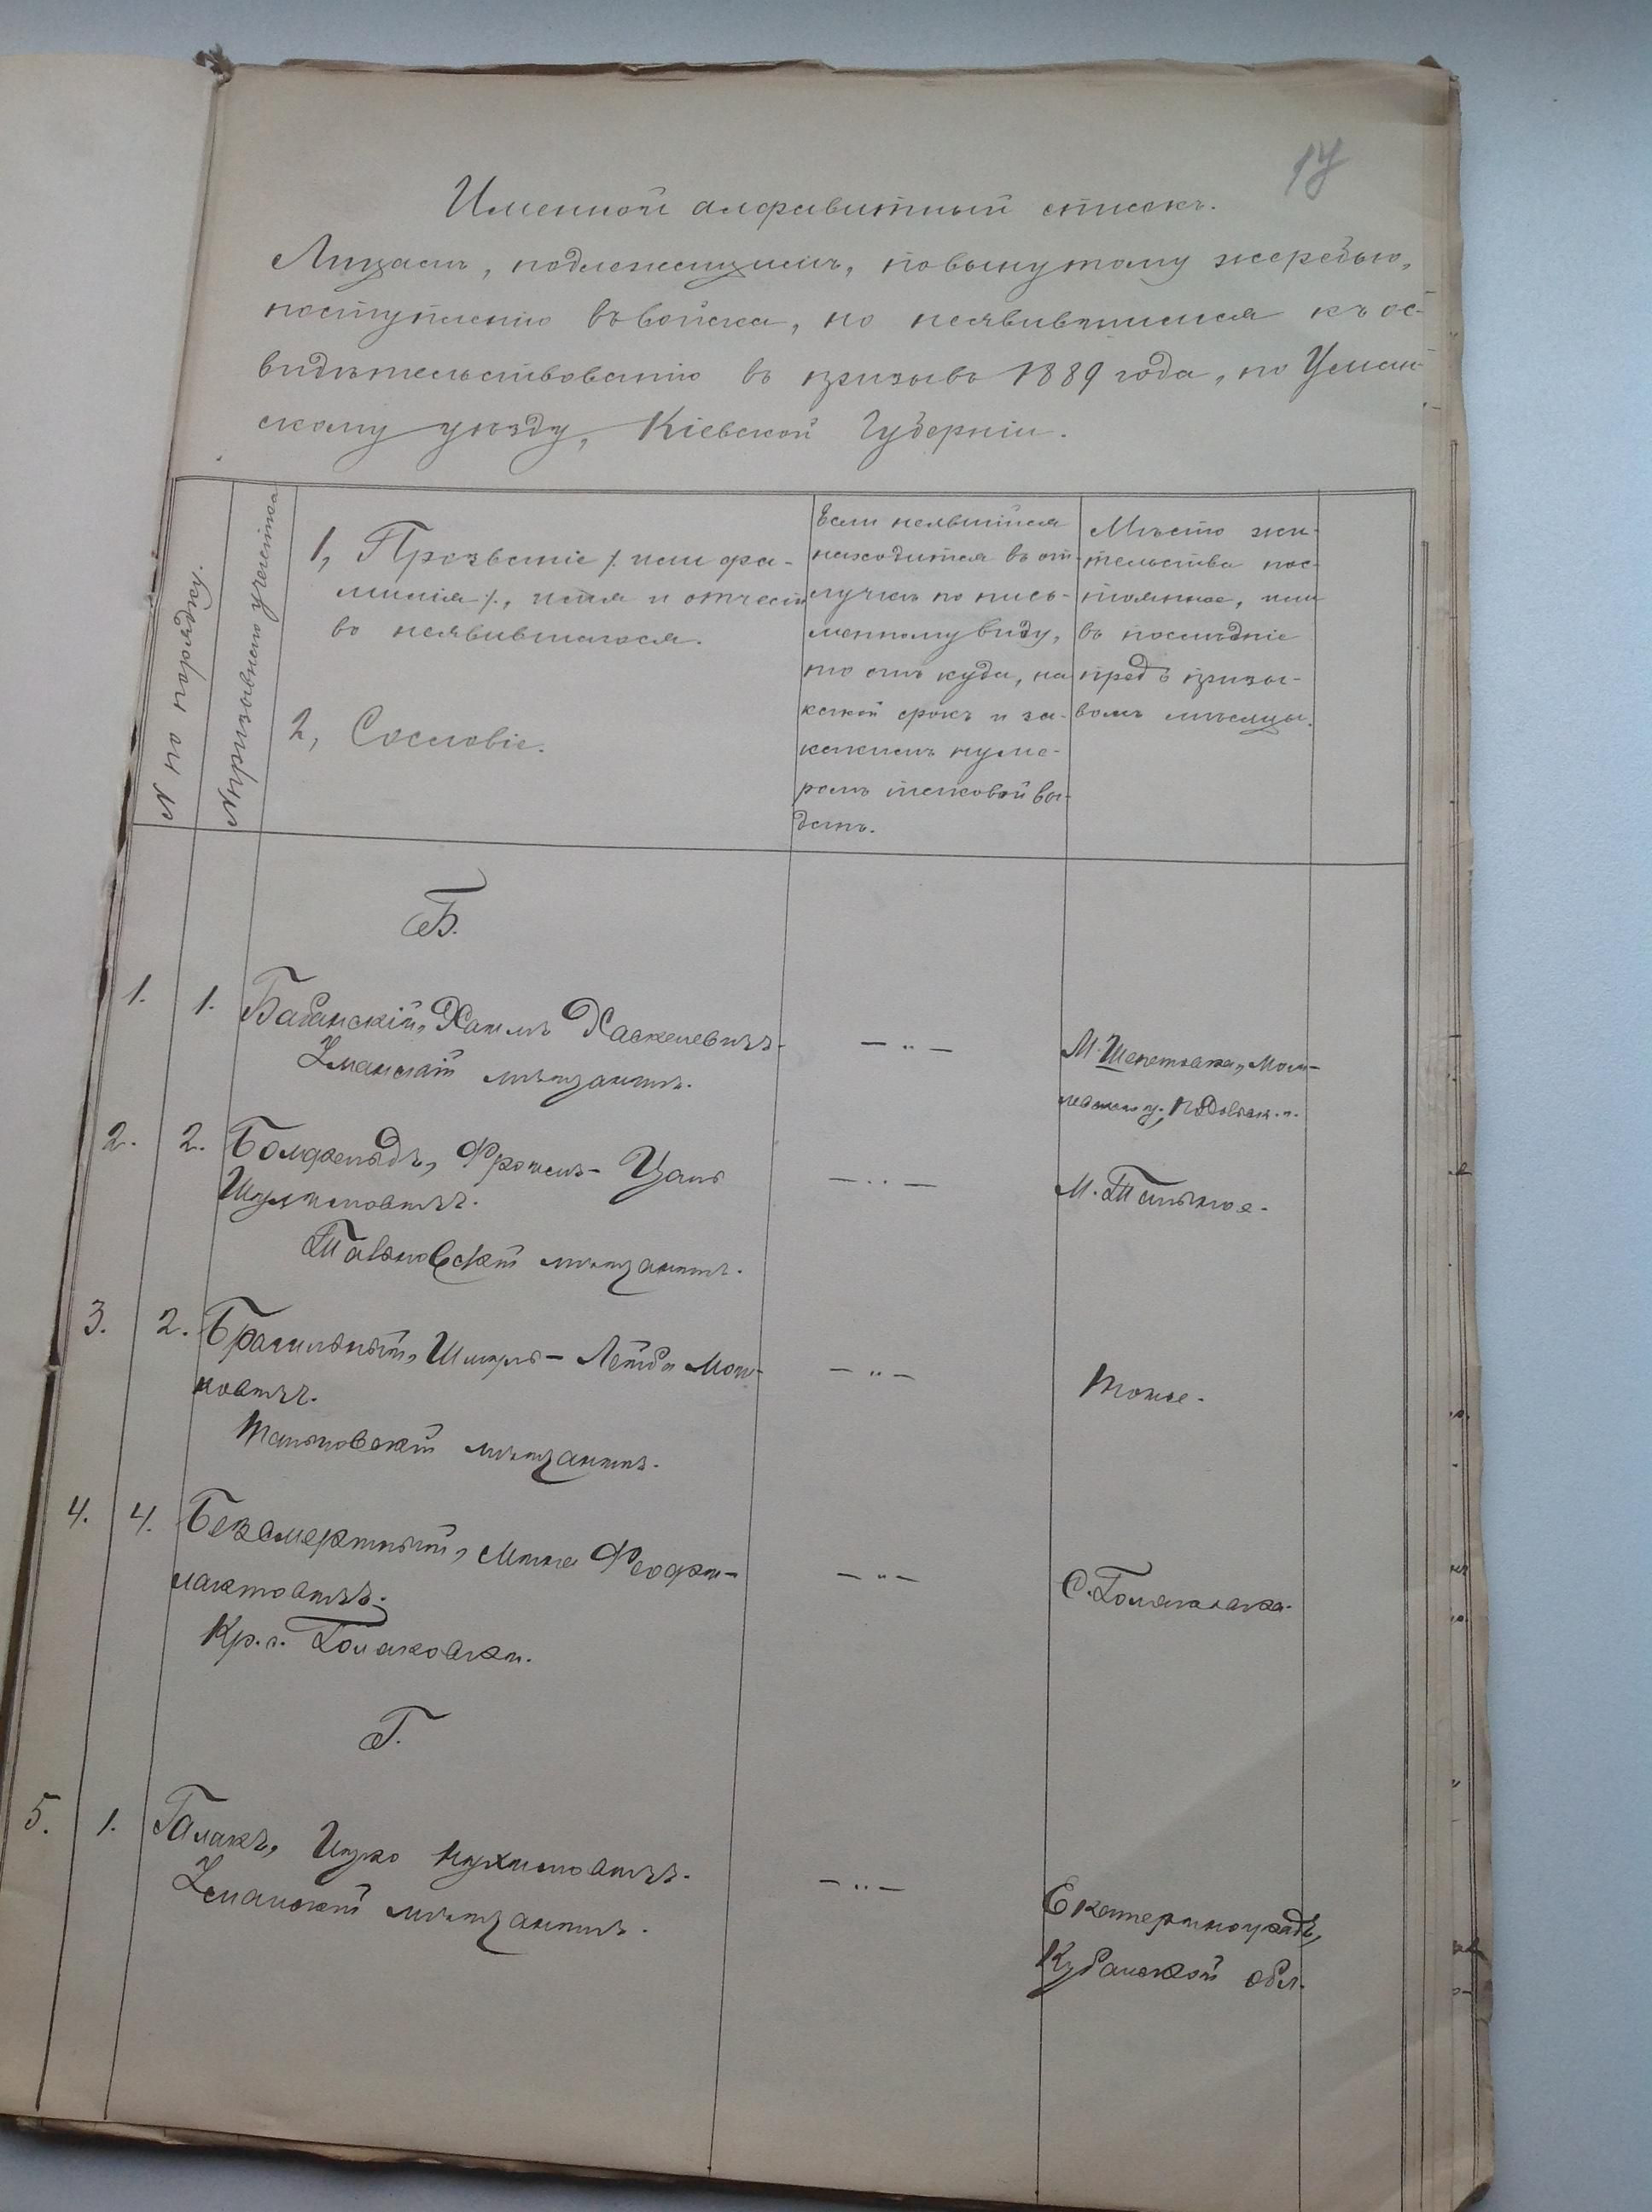 17
Именной алфавитный списокъ.
Лицамъ, подлежащимъ, по вынутому жеребью,
поступленію въ войска, но неявившимся къ ос-
видѣтельствованію въ призывъ 1889 года, по Уман-
скому уѣзду, Кіевской Губерніи.
№ по порядку.
№ призывного участка
1, Прозваніе /или фа-
милія/, имя и отчест
во неявившагося.
2, Сословіе.
Если неявшійся
находится въ от-
лучкѣ по пись-
менному виду,
то отъ куда, на
какой срокъ и за
какимъ нуме-
ромъ таковой вы-
данъ.
Мѣсто жи-
тельства пос-
тоянное, или
въ послѣдніе
предъ призы-
вомъ мѣсяцы.
Б.
1. 1. Хаимъ Хаскелевичъ
Уманскій мѣщанинъ.
— „ —
М. Шепетовка, Моги-
левскаго у., Подольск. г.
2. 2. Фроимъ-
Тальновскій мѣщанинъ.
— „ —
М. Тальное.
3. 2. Шмуль-Лейба Мош-
ковичъ.
Тальновскій мѣщанинъ.
— „ —
Тоже.
4. 4. Безсмертный, Мина Феофи-
лактовичъ.
Кр. с. Полаковки.
— „ —
Г.
5. 1. Галакъ, Ицко Нухимовичъ.
Уманскій мѣщанинъ.
— „ —
Екатеринодаръ,
Кубанской обл.